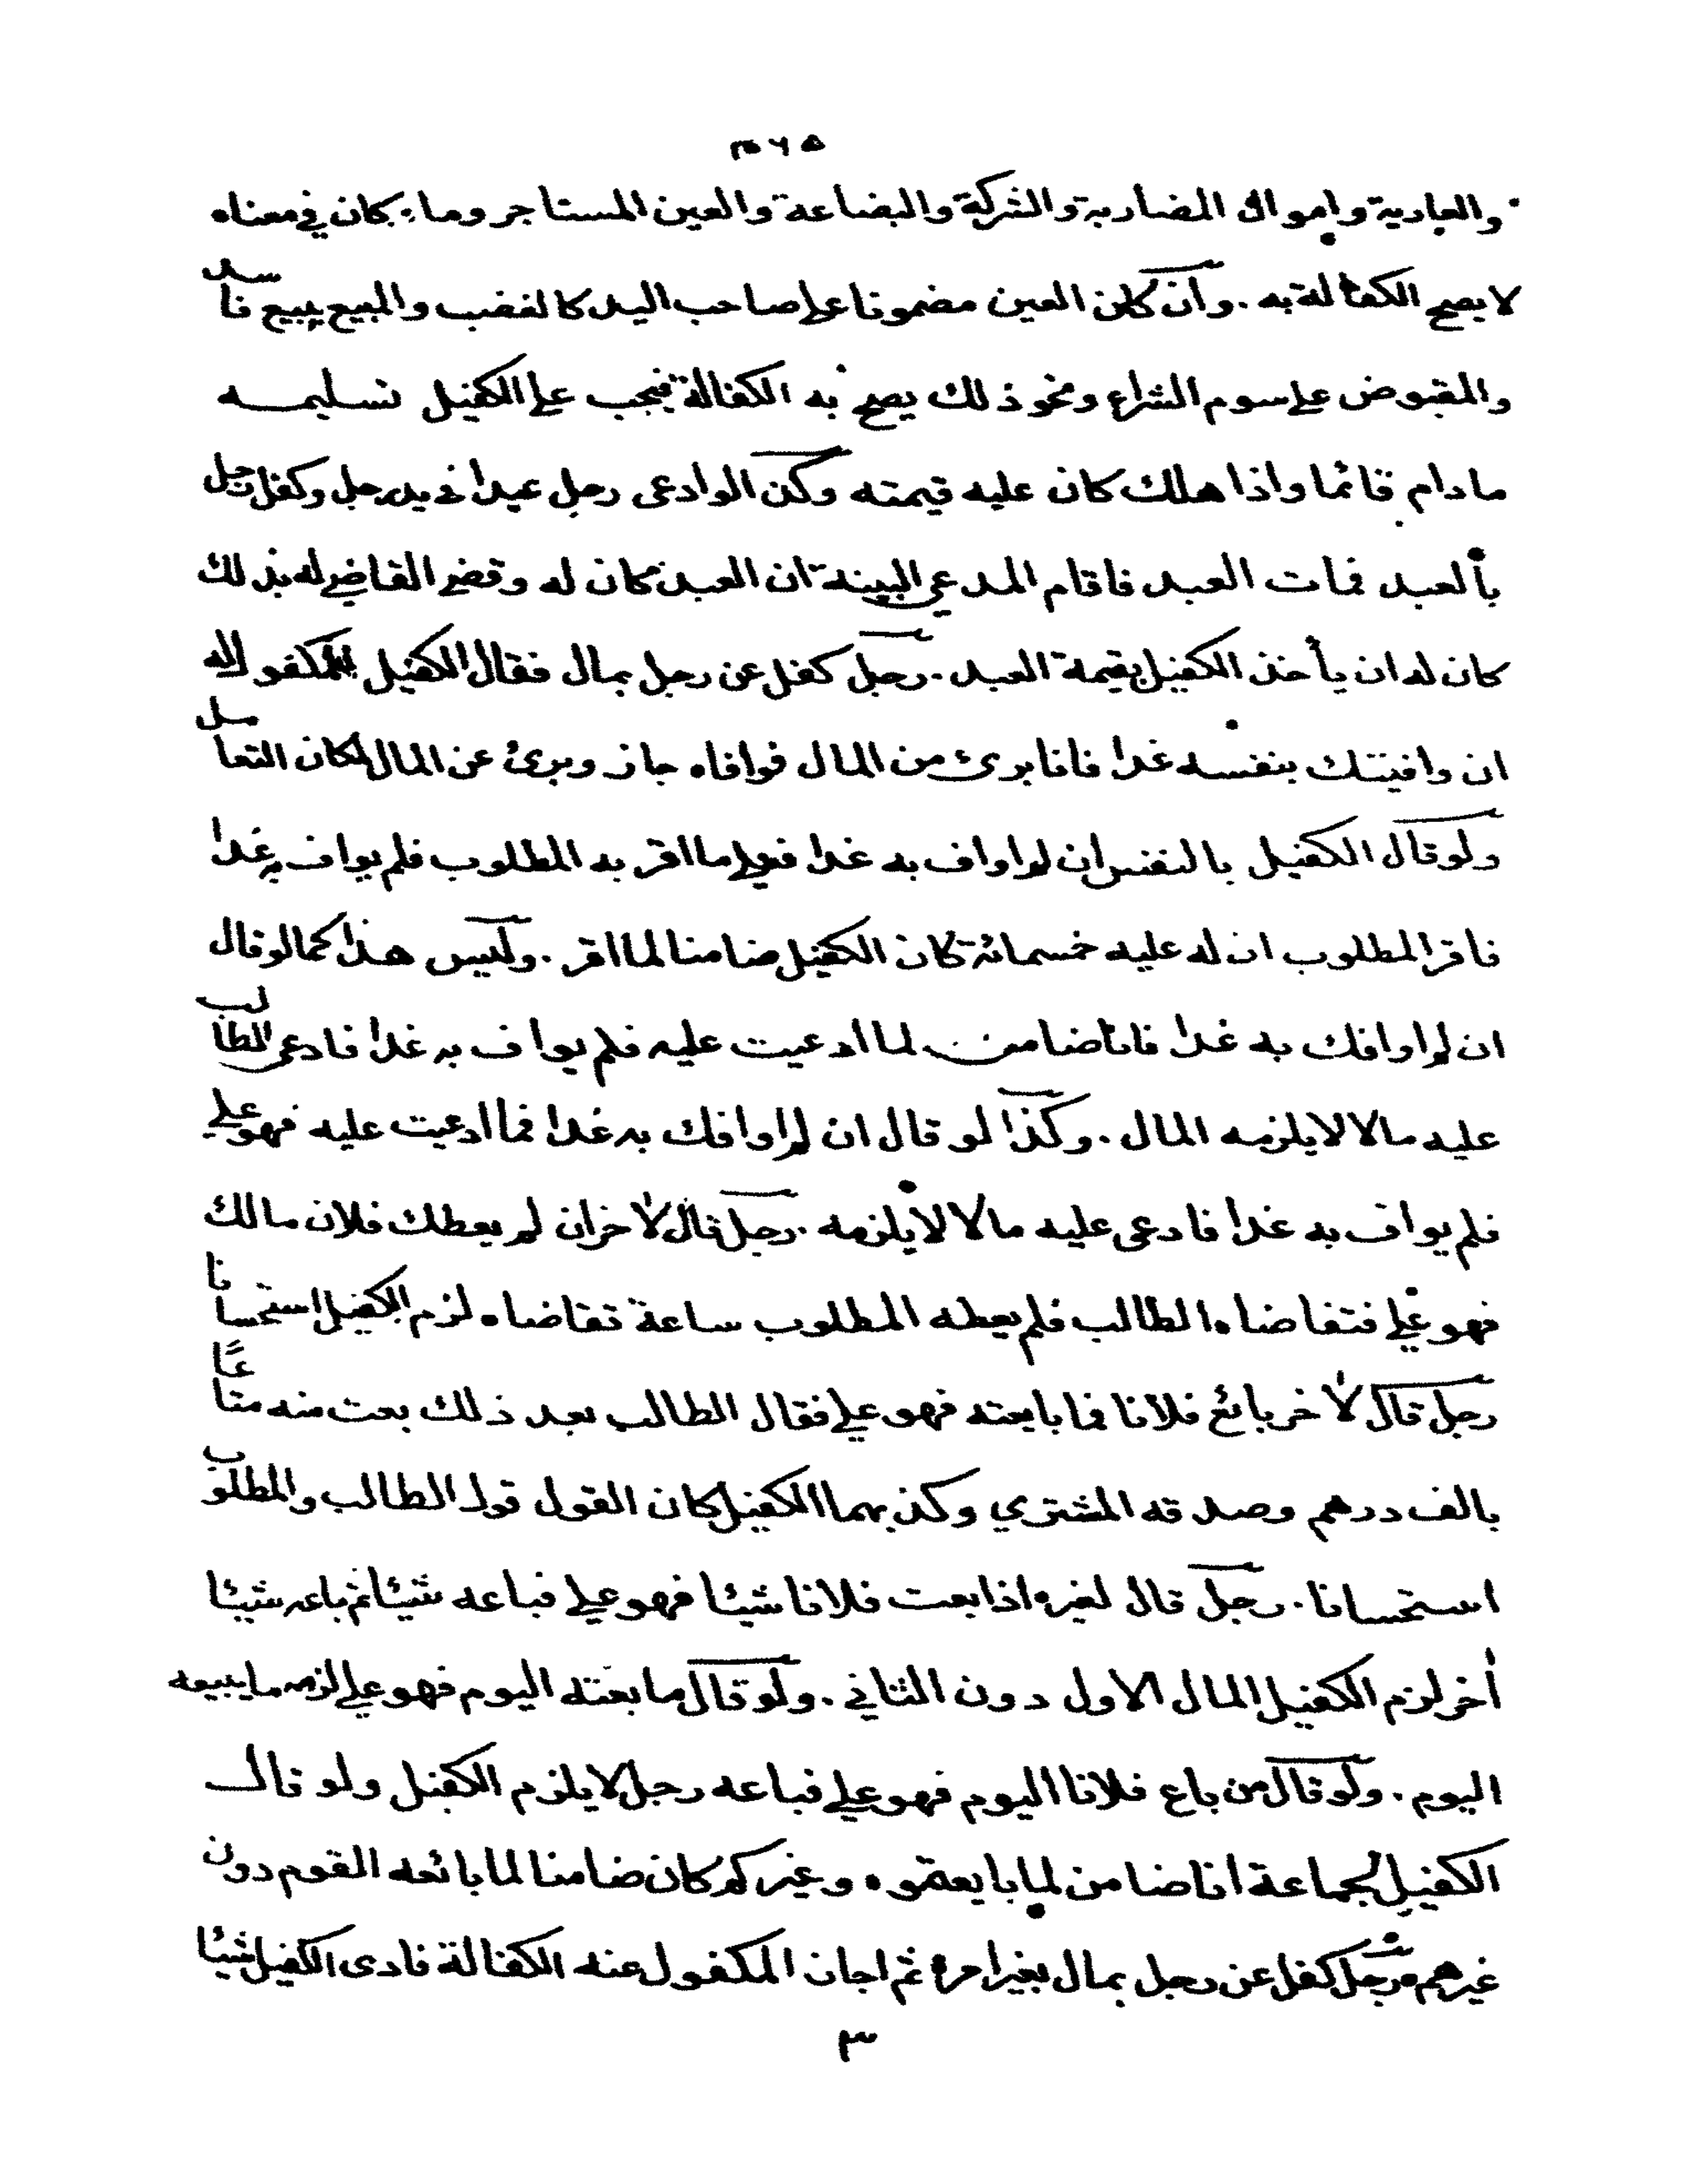 ٥٦٣
والعارية واموال المضاربة والشركة والبضاعة والعين المستاجر وما كان في معناه
لا يصح الكفالة به . وان كان العين مضمونا على صاحب اليد كالغضب والمبيع ببيع فاسد
والمقبوض على سوم الشراء ونحو ذلك يصح به الكفالة فيجب على الكفيل تسليمه
مادام قائما واذا هلك كان عليه قيمته وكذا لو ادعى رجل عبدا في يد رجل وكفل رجل
بالعبد فمات العبد فاقام المدعي البينة ان العبد كان له وقضى القاضي له بذلك
كان له ان يأخذ الكفيل بقيمة العبد . رجل كفل عن رجل بمال فقال الكفيل للمكفول له
ان وافيتك بنفسه غدا فانا برئ من المال فوافاه جاز وبرئ عن المال لمكان التعامل
ولو قال الكفيل بالنفس ان لم اواف به غدا فعلي ما اقر به المطلوب فلم يواف به غدا
فاقر المطلوب ان له عليه خمسمائة كان الكفيل ضامنا لما اقر . وليس هذا كما لو قال
ان لم اوافك به غدا فانا ضامن لما ادعيت عليه فلم يواف به غدا فادعى الطالب
عليه مالا لا يلزمه المال . وكذا لو قال ان لم اوافك به غدا فما ادعيت عليه فهو علي
فلم يواف به غدا فادعى عليه مالا لا يلزمه . رجل قال لاخر ان لم يعطك فلان مالك
فهو علي فتقاضاه الطالب فلم يعطه المطلوب ساعة تقاضاه لزم الكفيل استحسانا
رجل قال لاخر بائع فلانا فما بايعته فهو علي فقال الطالب بعد ذلك بعت منه متاعًا
بالف درهم وصدقه المشتري وكذبهما الكفيل كان القول قول الطالب والمطلوب
استحسانا . رجل قال لغيره اذا بعت فلانا شيئا فهو علي فباعه شيئا ثم باعه شيئا
أخر لزم الكفيل المال الاول دون الثاني . ولو قال ما بعته اليوم فهو علي لزمه ما يبيعه
اليوم . ولو قال من باع فلانا اليوم فهو علي فباعه رجل لا يلزم الكفيل ولو قال
الكفيل لجماعة انا ضامن لما بايعتموه وغيركم كان ضامنا لما بائعه القوم دون
غيرهم رجل كفل عن رجل بمال بغير امره ثم اجاز المكفول عنه الكفالة فادى الكفيل شيئا
٣